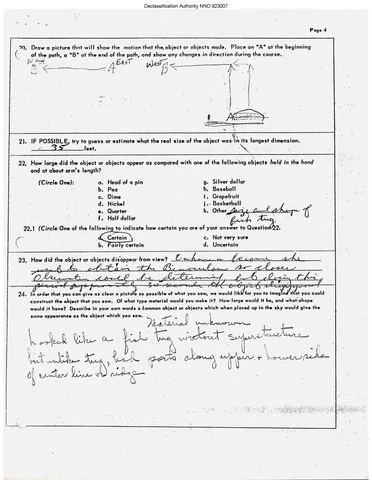 Declassification Authority NND 923007
Page 4
20. Draw a picture that will show the motion that the object or objects made. Place an "A" at the beginning
of the path, a "B" at the end of the path, and show any changes in direction during the course.
A EAST WEST
A
21. IF POSSIBLE, try to guess or estimate what the real size of the object was in its longest dimension.
35 feet.
22. How large did the object or objects appear as compared with one of the following objects held in the hand
and at about arm's length?
(Circle One): a. Head of a pin g. Silver dollar
b. Pea h. Baseball
c. Dime i. Grapefruit
d. Nickel j. Basketball
e. Quarter k. Other size and shape of
f. Half dollar fish tug
22.1 (Circle One of the following to indicate how certain you are of your answer to Question 22.
a. Certain c. Not very sure
b. Fairly certain d. Uncertain
23. How did the object or objects disappear from view? Unknown because she
went to obtain the Binoculars so closer
observation could be determined, but during this
period approximately 30 seconds the object disappeared
24. In order that you can give as clear a picture as possible of what you saw, we would like for you to imagine that you could
construct the object that you saw. Of what type material would you make it? How large would it be, and what shape
would it have? Describe in your own words a common object or objects which when placed up in the sky would give the
same appearance as the object which you saw.
Material unknown
Looked like a fish tug without superstructure
but unlike tug, had ports along upper + lower side
of center line or ridge